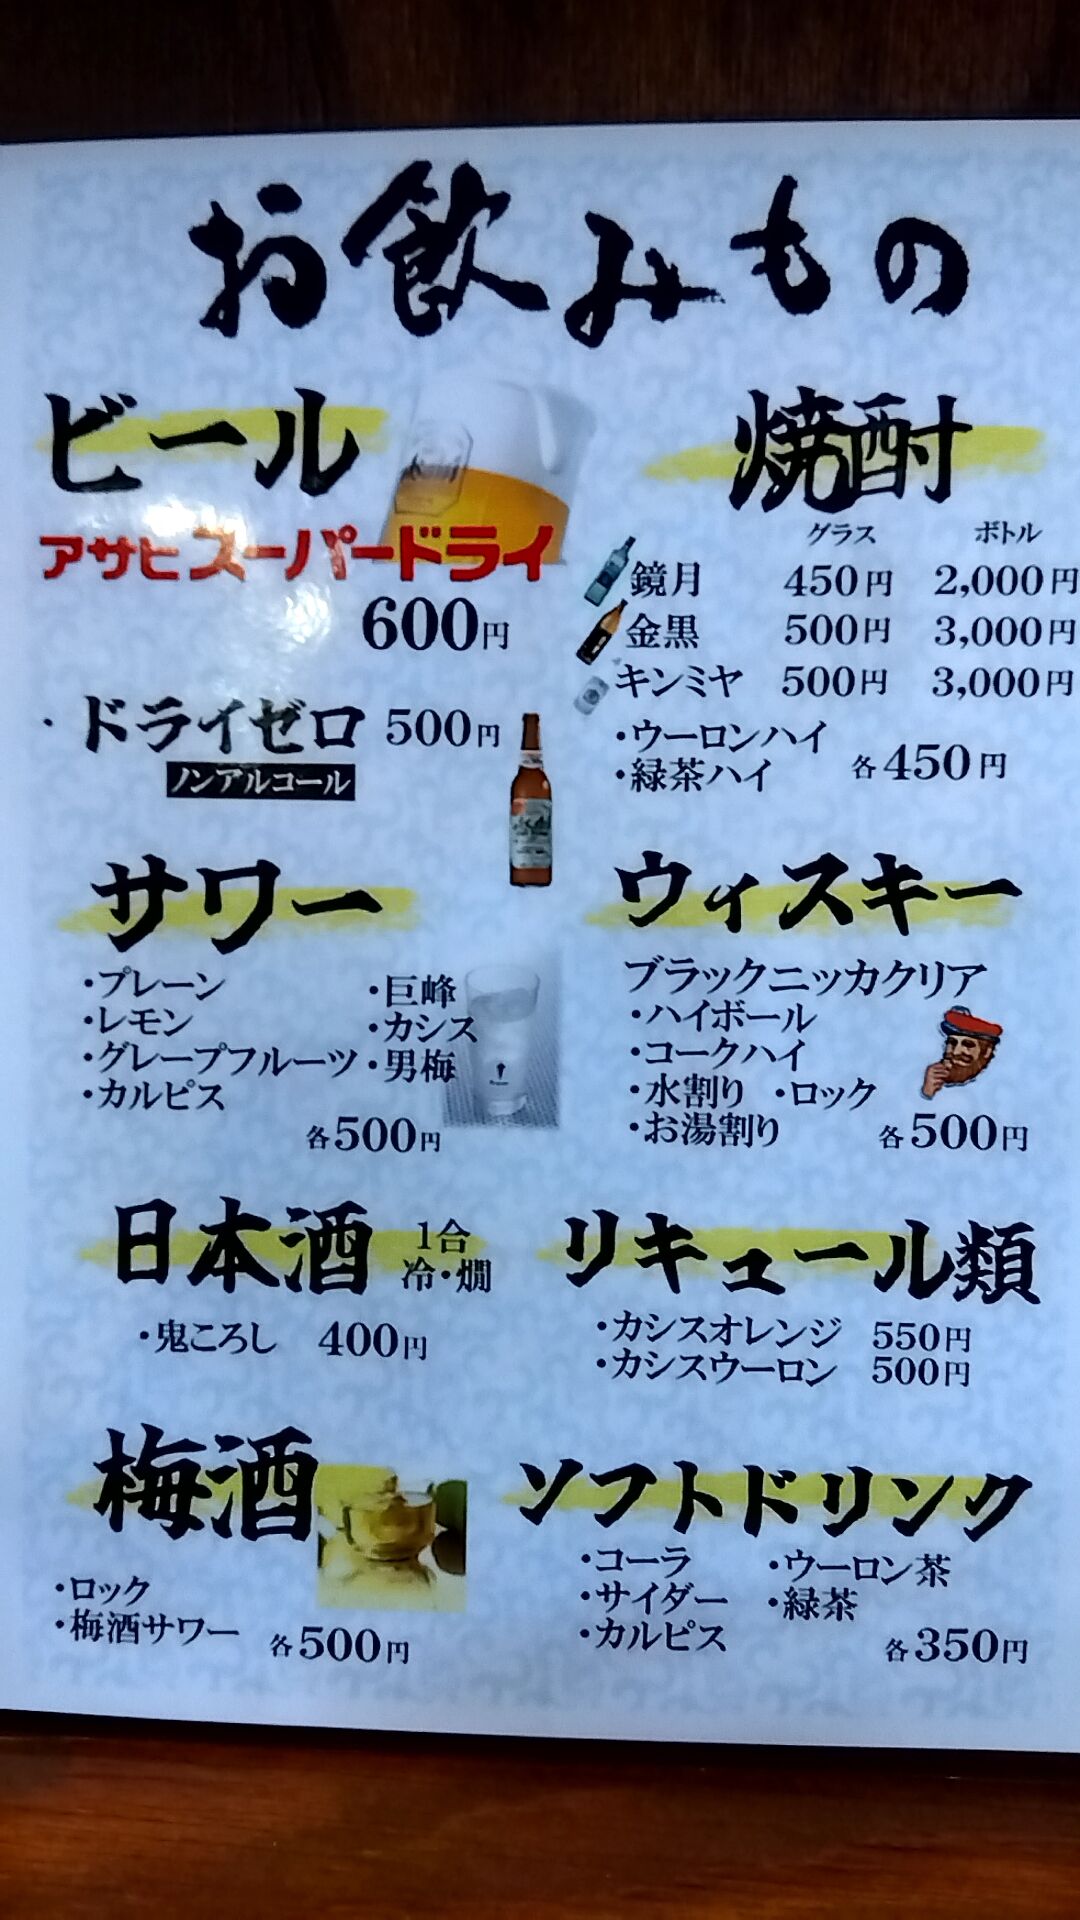 お飲みもの
ビール
アサヒスーパードライ
600円
・ドライゼロ 500円
ノンアルコール
焼酎
グラス ボトル
鏡月 450円 2,000円
金黒 500円 3,000円
キンミヤ 500円 3,000円
・ウーロンハイ
・緑茶ハイ
各450円
サワー
・プレーン
・レモン
・グレープフルーツ
・カルピス
・巨峰
・カシス
・男梅
各500円
ウィスキー
ブラックニッカクリア
・ハイボール
・コークハイ
・水割り ・ロック
・お湯割り
各500円
日本酒
1合
冷・燗
・鬼ころし 400円
リキュール類
・カシスオレンジ 550円
・カシスウーロン 500円
梅酒
・ロック
・梅酒サワー
各500円
ソフトドリンク
・コーラ
・サイダー
・カルピス
・ウーロン茶
・緑茶
各350円